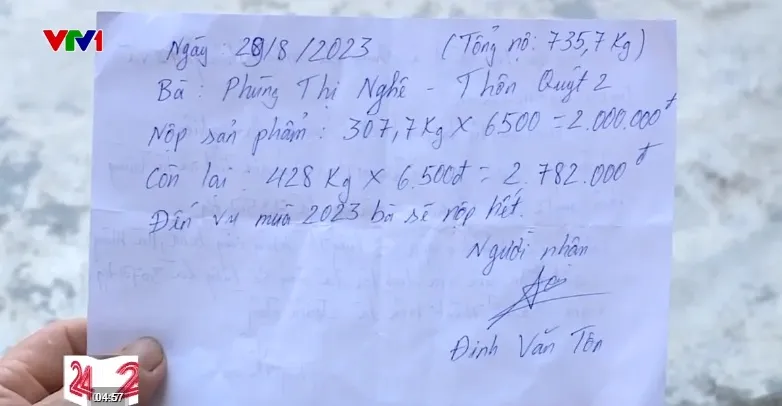 VTV1
Ngày: 29/8/2023 (Tổng nợ: 735,7 Kg)
Bà: Phùng Thị Nghê - Thôn Quýt 2
Nộp sản phẩm: 307,7 Kg X 6500 = 2.000.000đ
Còn lại: 428 Kg X 6.500đ = 2.782.000đ
Đến vụ mùa 2023 bà sẽ nộp hết.
Người nhận
Đinh Văn Tôn
24 2
04:57